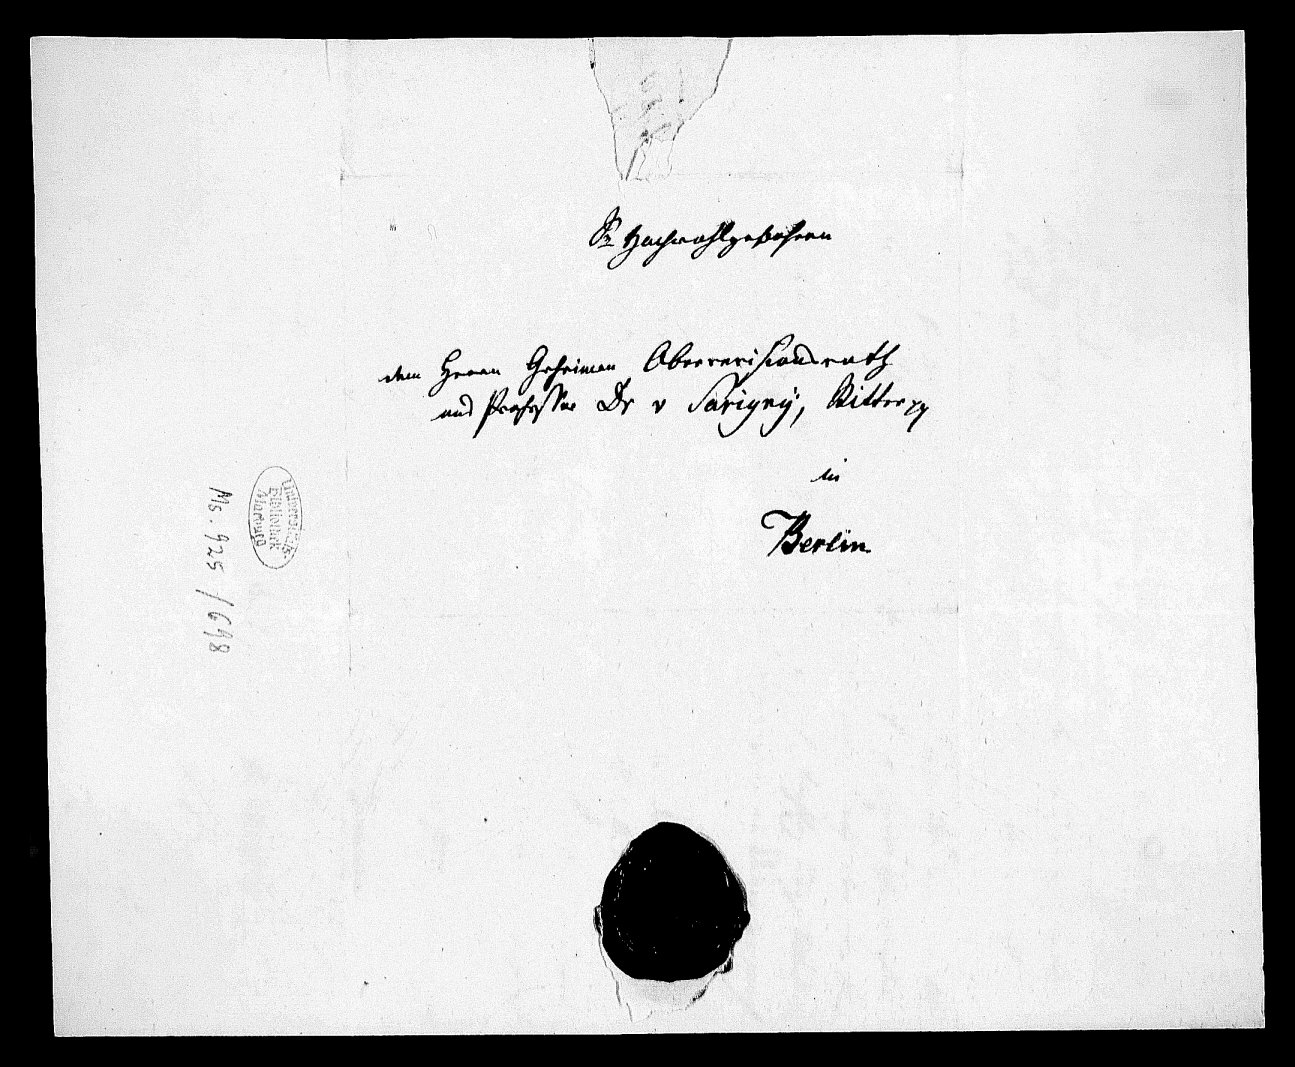 Sr Hochwohlgebohren
dem Herrn Geheimen Oberrevisionsrath
und Professor Dr v Savigny, Ritter pp
in
Berlin
Universitäts-
Bibliothek
Marburg
Ms. 925 / 698